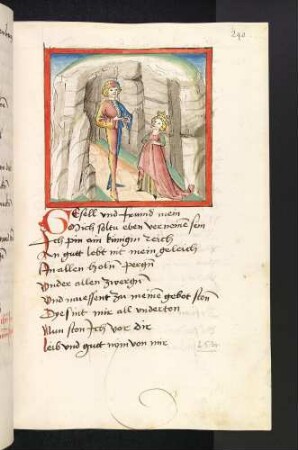 240
Gesell vnd frund mein
So ich soltu eben vernomē sein
Ich pin ain künigin reich
An gutt lebt nit mein geleich
In allen holn pergn
Vnder allen zwergn
Vnd müessent zu meinē gebot ston
Dye sint mir all vnderton
Nun ston Ich vor dir
leib vnd gutt nym von mir